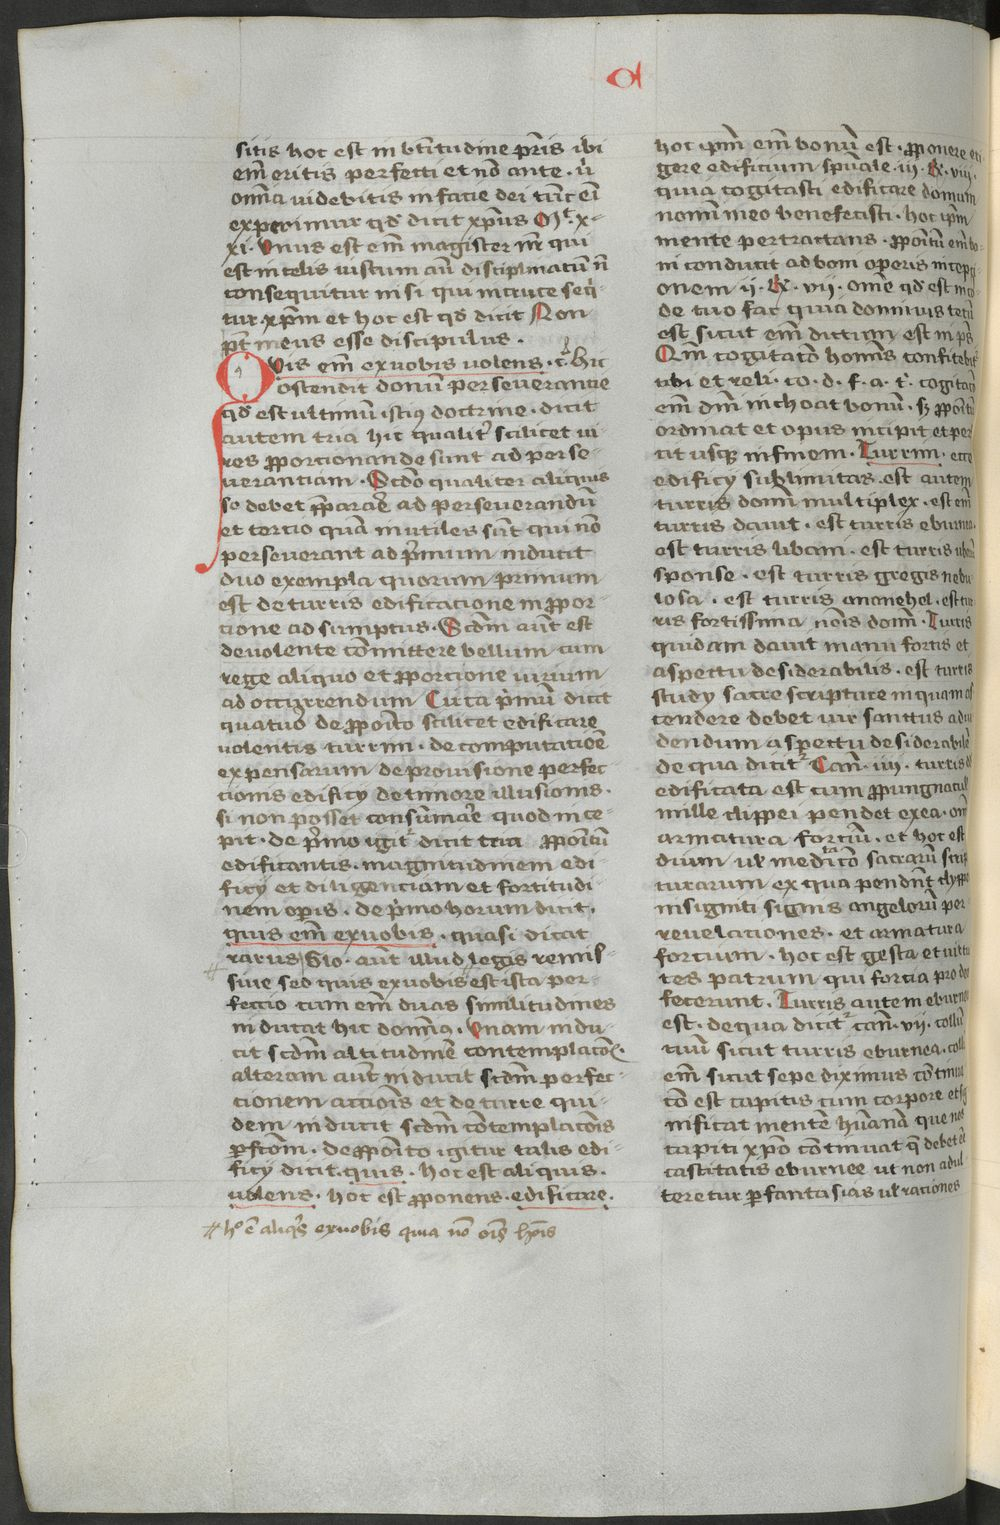 sitis hoc est in bt̄itudine pr̄is ibi
em̄ eritis perfecti et nō ante · ū
omīa videbitis in facie dei tūc eī
experimur qd̓ dicit xp̄us Mt̓ · x-
xi · Vnus est em̄ magister nr̄ qui
est in celis
consequitur nisi qui in cruce seq̄-
tur xp̄m et hoc est qd̓ dicit Non
pt̄ meus esse discipulus ·
Qvis em̄ ex vobis volens · c̓ · Hic
ostendit donū perseverancie
qd̓ est ultimū istiꝯ doctrine · dicit
autem tria hic qualit̓ scilicet vi-
res ꝓporcionande sunt ad perse-
verantiam · Scd̓o qualiter aliquis
se debet p̄parar̓e ad perseverandū
et tercio quā inutiles sūt qui nō
perseverant ad p̓mum inducit
duo exempla quorum primum
est de turris edificacione in ꝓpor-
cione ad sumptus · Scd̄m aūt est
de volente cōmittere bellum cum
rege aliquo et ꝓporcione virium
ad occurrendum Circa p̓mū dicit
quatuor̓ de ꝓpoīto scilicet edificare
volentis turrim · de computacioē
expensarum de provisione perfec-
cionis edificij de timore illusionis ·
si non posset consūmar̓e quod ince-
pit · de p̓mo igit᷑ dicit tria ꝓpoītū
edificantis · magnitudinem edi-
ficij et diligenciam et fortitudi-
nem oꝑis · de p̓mo horum dicit ·
quis em̄ ex vobis · quasi dicat
rarus Glo · aūt illud legis remis-
sive sed quis ex vobis est ista per-
fectio cum em̄ duas similitudines
inducat hic dominꝯ · Vnam indu-
cit scd̄m altitudinē contemplacōis ·
alteram aūt inducit scd̄m perfec-
cionem accionis et de turre qui-
dem inducit scd̄m cōtemplacōis
ꝑfcōem · de ꝓpoīto igitur talis edi-
ficij dicit quis · hoc est aliquis ·
volens · hoc est ꝓponens · edificare ·
⌗ h̊ ē aliq̓s ex vobis quia nō oīs hoīs
hoc ip̄m em̄ bonū est · ꝓponere eri-
gere edificium spūale · iij · R̄ · viij ·
quia cogitasti edificare domum
nomī meo benefecisti · hoc ip̄m
mente pertractans · ꝓpoītū em̄ bo-
ni conducit ad bom̄ operis incepci-
onem ij · R̄ · vij · omē qd̓ est in cor-
de tuo fac quia dominus tecū
est sicut em̄ dictum est in ps̄
Qm̄ cogitacō hominis confitebit᷑
tibi et reli · co · d · f · a · t̓ · cogitacō
em̄ dm̄ inchoat bonū · sꝫ ꝓpoītū
ordinat et opus incipit et per-
cit usqꝫ in finem · Turrim · ecce
edificij sublimitas · est autem
turris domī multiplex · est em̄
turris davit · est turris eburnea
est turris libani · est turris
sponse · est turris gregis nebu-
losa · est turris ananehel · est tur-
ris fortissima noīs domī · Turris
quidam davit manu fortis et
aspectu desiderabilis · est turris
studij sacre scripture in quam as-
cendere debet vir sanctus
dendum aspectu desiderabilē
de qua dicit᷑ Cañ · iiij · turris d
edificata est cum ꝓpungnaculis
mille clippei pendet ex ea · om̄
armatura forciū · et hoc est
dium ut̓ meditacō sacrarū scrip-
turarum ex qua pendn̄t clyppei
insigniti signis angelorū per
revelaciones · et armatura
forcium · hoc est gesta et virtu-
tes patrum qui forcia pro deo
fecerunt · Turris autem eburnea
est · de qua dicit᷑ cañ · vij · collū
tuū sicut turris eburnea · coll
em̄ sicut sepe diximus cōtinua-
cō est capitis cum corpore et sig-
nificat mentē hūanā que nos
capiti xp̄o cōtinuat q̄ debet eē
castitatis eburnee ut non adul-
teretur ꝑ fantasias ut̓ raciones